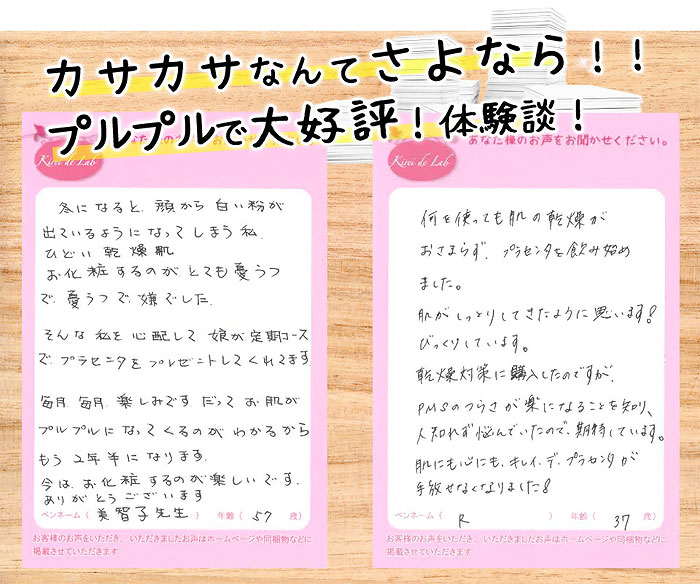 カサカサなんてさよなら！！
プルプルで大好評！体験談！
Kirei de Lab
冬になると、頭から白い粉が
出ているようになってしまう私、
ひどい乾燥肌
お化粧するのがとても憂うつ
で、憂うつで、嫌でした。
そんな私を心配して娘が定期コース
で、プラセンタをプレゼントしてくれてます。
毎月、毎月、楽しみです。だってお肌が
プルプルになってくるのがわかるから
もう2年半になります。
今は、お化粧するのが楽しいです。
ありがとうございます
ペンネーム（ 美智子先生 ） 年齢（ 57 歳）
お客様のお声をいただき、いただきましたお声はホームページや同梱物などに
掲載させていただきます
あなた様のお声をお聞かせください。
Kirei de Lab
何を使っても肌の乾燥が
おさまらず、プラセンタを飲み始め
ました。
肌がしっとりしてきたように思います!
びっくりしています。
乾燥対策に購入したのですが、
PMSのつらさが楽になることを知り、
人知れず悩んでいたので、期待しています。
肌にも心にも、キレイ・デ・プラセンタが
手放せなくなりました!
ペンネーム（ R ） 年齢（ 37 歳）
お客様のお声をいただき、いただきましたお声はホームページや同梱物などに
掲載させていただきます